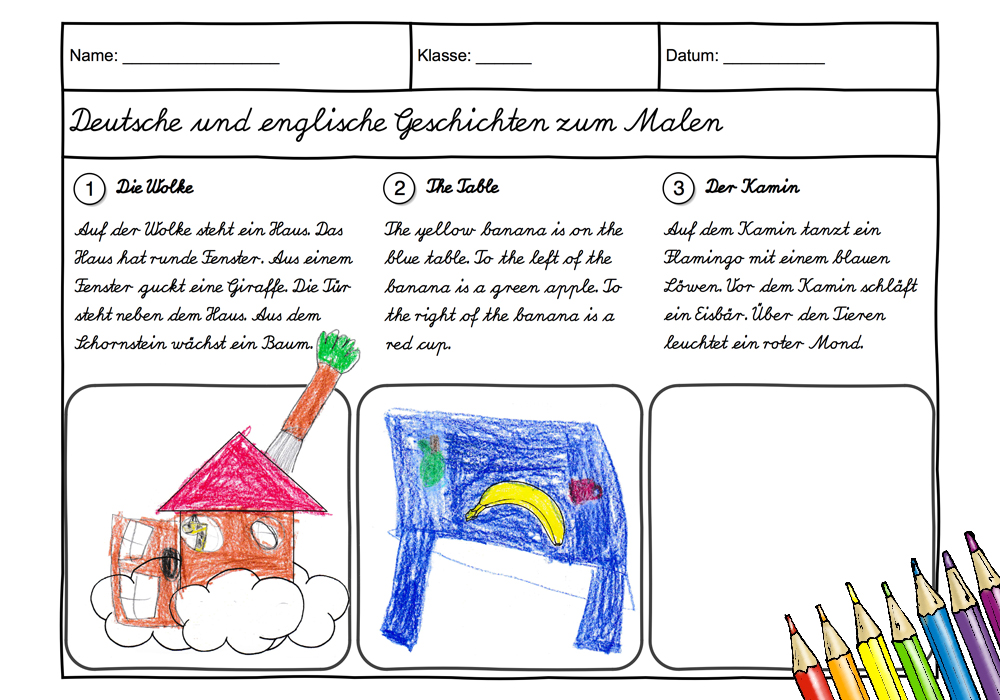 Name: _________________ Klasse: ______ Datum: ___________
Deutsche und englische Geschichten zum Malen
1 Die Wolke
Auf der Wolke steht ein Haus. Das
Haus hat runde Fenster. Aus einem
Fenster guckt eine Giraffe. Die Tür
steht neben dem Haus. Aus dem
Schornstein wächst ein Baum.
2 The Table
The yellow banana is on the
blue table. To the left of the
banana is a green apple. To
the right of the banana is a
red cup.
3 Der Kamin
Auf dem Kamin tanzt ein
Flamingo mit einem blauen
Löwen. Vor dem Kamin schläft
ein Eisbär. Über den Tieren
leuchtet ein roter Mond.